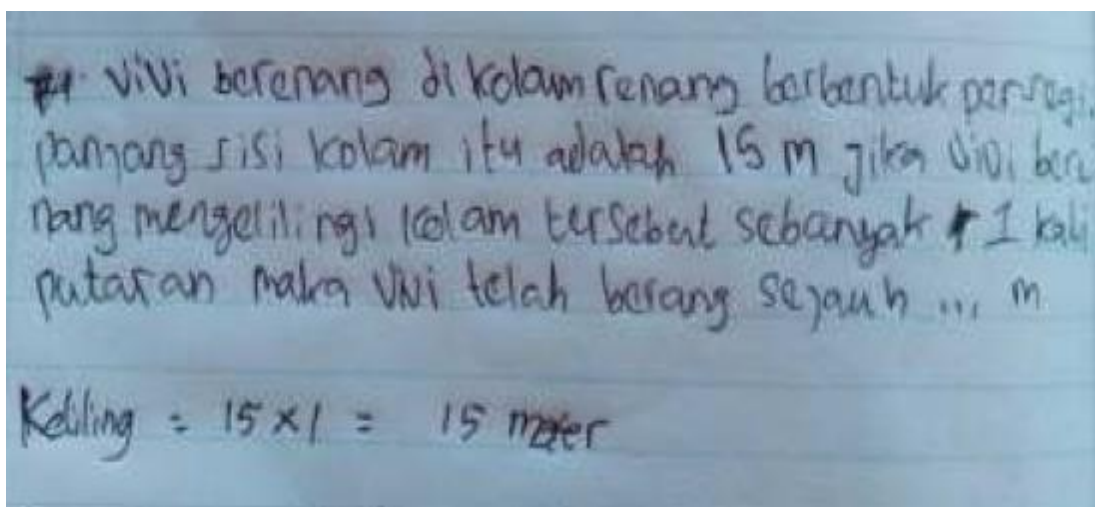 Vivi berenang di kolam renang berbentuk persegi.
panjang sisi kolam itu adalah 15 m jika Vivi bere
nang mengelilingi kolam tersebut sebanyak 1 kali
putaran maka Vivi telah berang sejauh ... m
Keliling = 15 x 1 = 15 meter